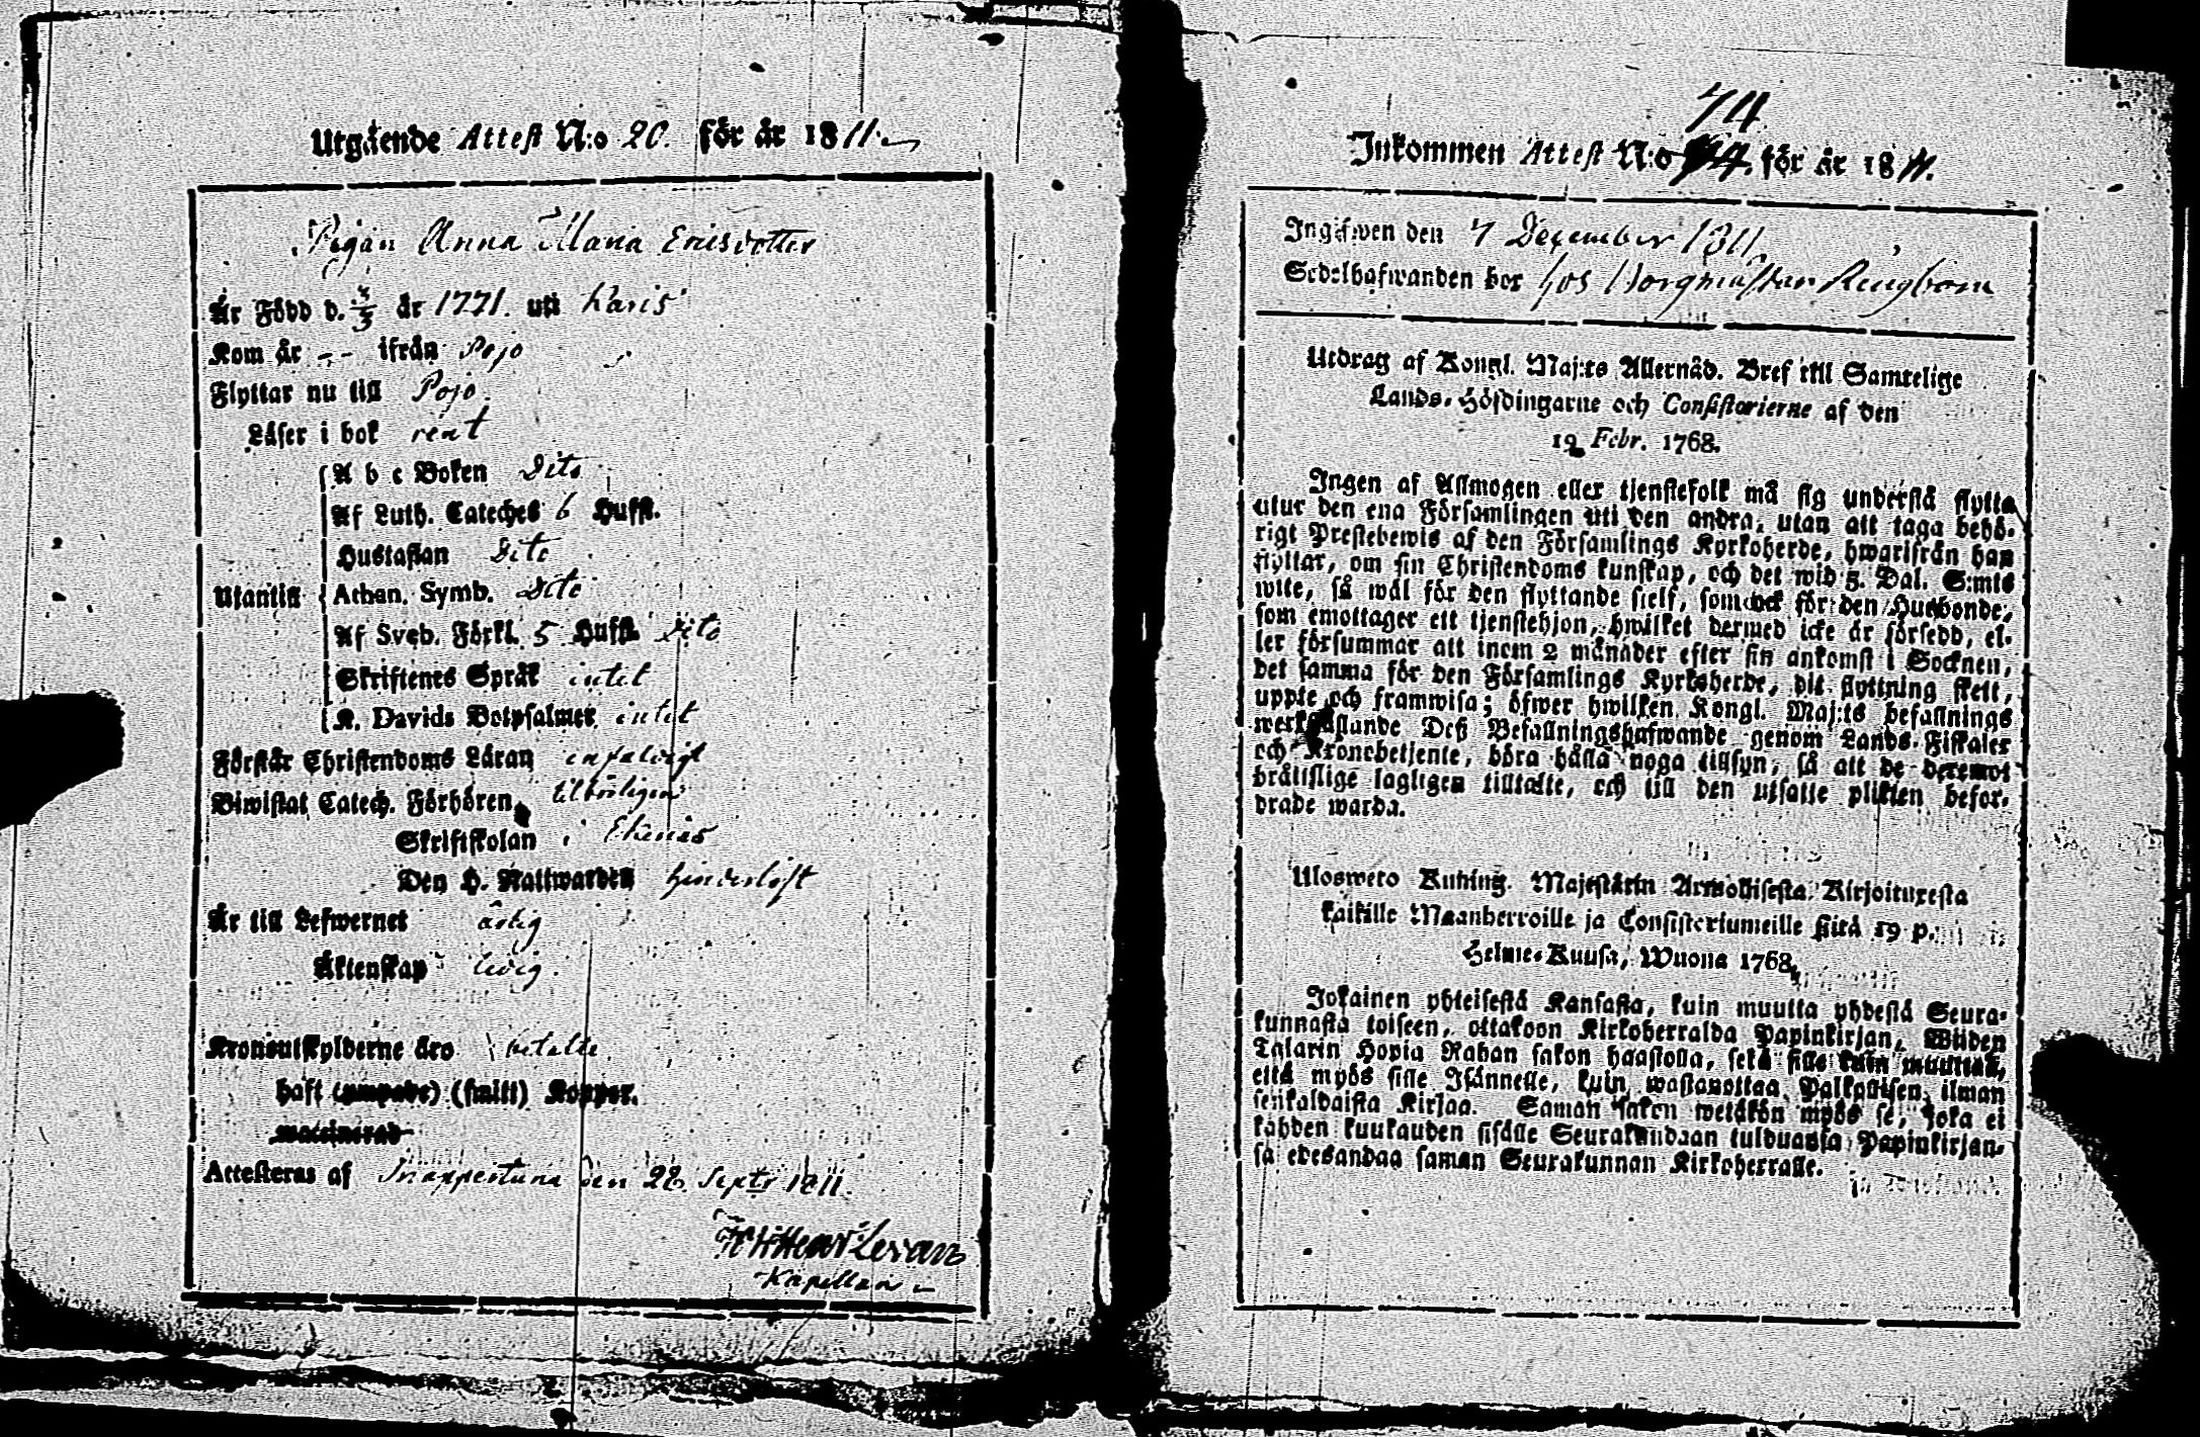 Utgående Attest N:o 20. för år 1811.
Pigan Anna Maria Ericsdotter
Är Född d. 4/3 år 1771. uti Karis
Kom år -- ifrån Pojo
Flyttar nu till Pojo.
Läser i bok rent
A b c Boken Dito
Af Luth. Cateches 6 Hufst.
Hustaflan Dito
Utantill Athan. Symb. Dito
Af Sveb. Förkl. 5 Hufst. Dito
Skriftenes Språk intet
K. Davids Botpsalmer intet
Förstår Christendoms Läran enfaldigt
Biwistat Catech. Förhören tilbörligen
Skriftskolan i Ekenäs
Den H. Nattwarden hinderlöst
Är till Lefwernet ärlig
Äktenskap ledig.
Kronoutskylderne äro betalte
haft (smittl) Koppor.
waccinerad
Attesteras af Snappertuna den 28 Septr 1811.
Kapellan
74
Inkommen Attest N:o 74. för år 1811.
Ingifwen den 7 December 1811
Sedelhafwanden bor hos Borgmästar Ringbom
Utdrag af Kongl. Maj:ts Allernåd. Bref till Samtelige
Lands-Höfdingarne och Consistorierne af den
19 Febr. 1768.
Ingen af Allmogen eller tjenstefolk må sig understå flytta
utur den ena Församlingen uti den andra, utan att taga behö-
rigt Prestebewis af den Församlings Kyrkoherde, hwarifrån han
flyttar, om sin Christendoms kunskap, och det wid 5. Dal. S:mts
wite, så wäl för den flyttande sielf, som ock för den Husbonde,
som emottager ett tjenstehjon, hwilket dermed icke är försedd, el-
ler försummar att inom 2 månader efter sin ankomst i Socknen,
det samma för den Församlings Kyrkoherde, dit flyttning skett,
uppte och framwisa; öfwer hwilken Kongl. Maj:ts befallnings
werkställande Deß Befallningshafwande genom Lands-Fiskaler
och Kronobetjente, böra hålla noga tillsyn, så att de deremot
bråttslige lagligen tilltalte, och till den utsatte plikten befor-
drade warda.
Ulosweto Kuning. Majestätin Armollisesta Kirjoituxesta
kaikille Maanherroille ja Consistoriumeille siitä 19 p.
Helme-Kuusa, Wuona 1768.
Jokainen yhteisestä Kansasta, kuin muutta yhdestä Seura-
kunnasta toiseen, ottakoon Kirkoherralda Papinkirjan, Wiiden
Talarin Hopia Rahan sakon haastolla, sekä sille kuin muuttaa,
että myös sille Isännelle, kuin wastanottaa Palkollisen, ilman
senkaldaista Kirjaa. Saman sakon wetäkön myös se, joka ei
kahden kuukauden sisälle Seurakundaan tulduansa Papinkirjan-
sa edesandaa saman Seurakunnan Kirkoherralle.